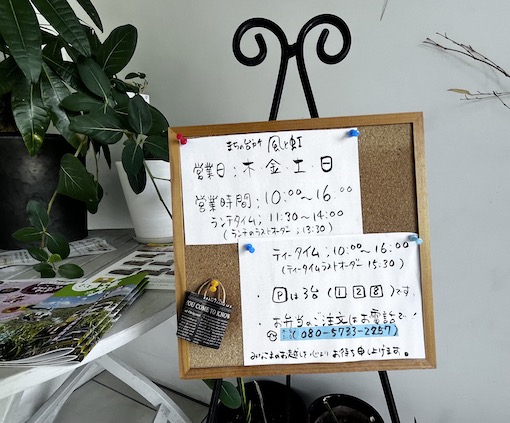 まちの台所 風と虹
営業日：木・金・土・日
営業時間：10:00～16:00
ランチタイム：11:30～14:00
(ランチのラストオーダー：13:30)
ティータイム：10:00～16:00
(ティータイムラストオーダー 15:30)
・Pは3台(1 2 8)です。
・お弁当のご注文はお電話で‥
(080-5733-2257)
みなさまのお越しを心よりお待ち申し上げます。
YOU COME TO KNOW